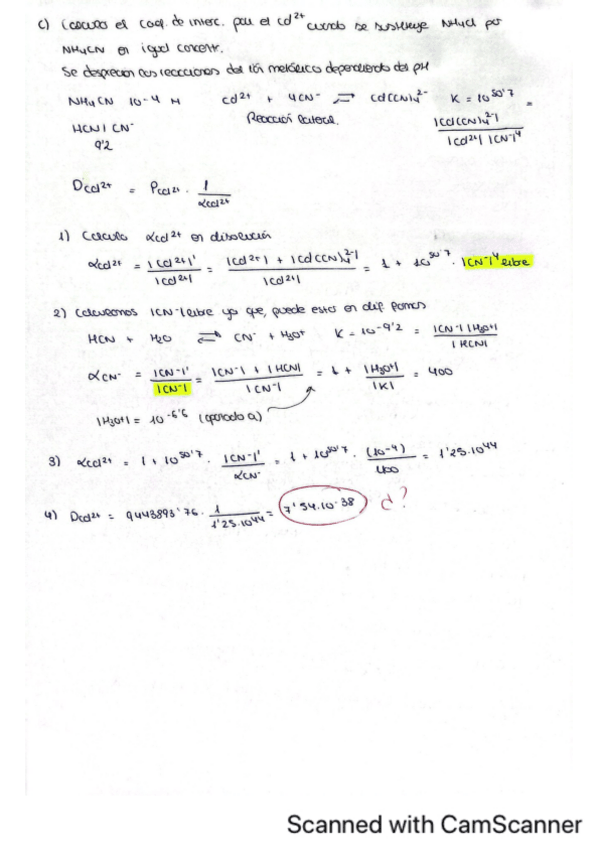 c) Calculo el coef. de interc. para el Cd²⁺ cuando se sustituye NH₄Cl por
NH₄CN en igual concentr.
Se desprecian las reacciones del ión metálico dependiendo del pH
NH₄CN 10⁻⁴ M Cd²⁺ + 4CN⁻ ⇌ Cd(CN)₄²⁻ K = 10^30'7 = |Cd(CN)₄²⁻| / |Cd²⁺| |CN⁻|⁴
HCN | CN⁻ Reacción lateral.
9'2
DCd²⁺ = PCd²⁺ · 1 / αCd²⁺
1) Calculo αCd²⁺ en disolución
αCd²⁺ = |Cd²⁺|' / |Cd²⁺| = |Cd²⁺| + |Cd(CN)₄²⁻| / |Cd²⁺| = 1 + 10^30'7 · |CN⁻|⁴ libre
2) Calculamos |CN⁻| libre ya que, puede estar en dif. formas
HCN + H₂O ⇌ CN⁻ + H₃O⁺ K = 10^-9'2 = |CN⁻| |H₃O⁺| / |HCN|
αCN⁻ = |CN⁻|' / |CN⁻| = |CN⁻| + |HCN| / |CN⁻| = 1 + |H₃O⁺| / |K| = 400
|H₃O⁺| = 10^-6'6 (apartado a)
3) αCd²⁺ = 1 + 10^30'7 · |CN⁻|' / αCN⁻ = 1 + 10^30'7 · (10⁻⁴) / 400 = 1'25·10⁴⁴
4) DCd²⁺ = 9443893'76 · 1 / 1'25·10⁴⁴ = 7'54·10⁻³⁸ d?
Scanned with CamScanner